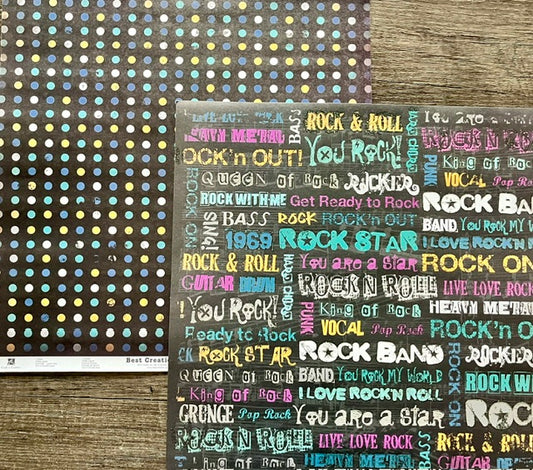 LIVE LOVE ROCK BASS ROCK & ROLL You are a
HEAVY METAL HARD CHORDS ROCK N ROLL
ROCK'n OUT! YOU ROCK! PUNK King of Rock
ROCK ON QUEEN OF ROCK ROCKER VOCAL Pop Rock
ROCK WITH ME Get Ready to Rock ROCK BAND
SING! BASS ROCK ROCK'n OUT BAND, YOU ROCK MY
1969 ROCK STAR I LOVE ROCK'N
ROCK & ROLL HARD CHORDS YOU ARE A STAR ROCK ON
GUITAR DRUM ROCK N ROLL LIVE LOVE ROCK
! YOU ROCK! PUNK King of Rock HEAVY METAL
Ready to Rock VOCAL Pop Rock ROCK'n OUT
CK ROCK STAR ROCK BAND ROCK ON ROCKER
QUEEN OF ROCK BAND, YOU ROCK MY WORLD ROCK WITH
King of Rock I LOVE ROCK'N ROLL
GRUNGE Pop Rock YOU ARE A STAR ROCK
ROCK N ROLL LIVE LOVE ROCK BASS ROCK & ROLL
QUEEN OF ROCK GUITAR DRUM
Best Creati